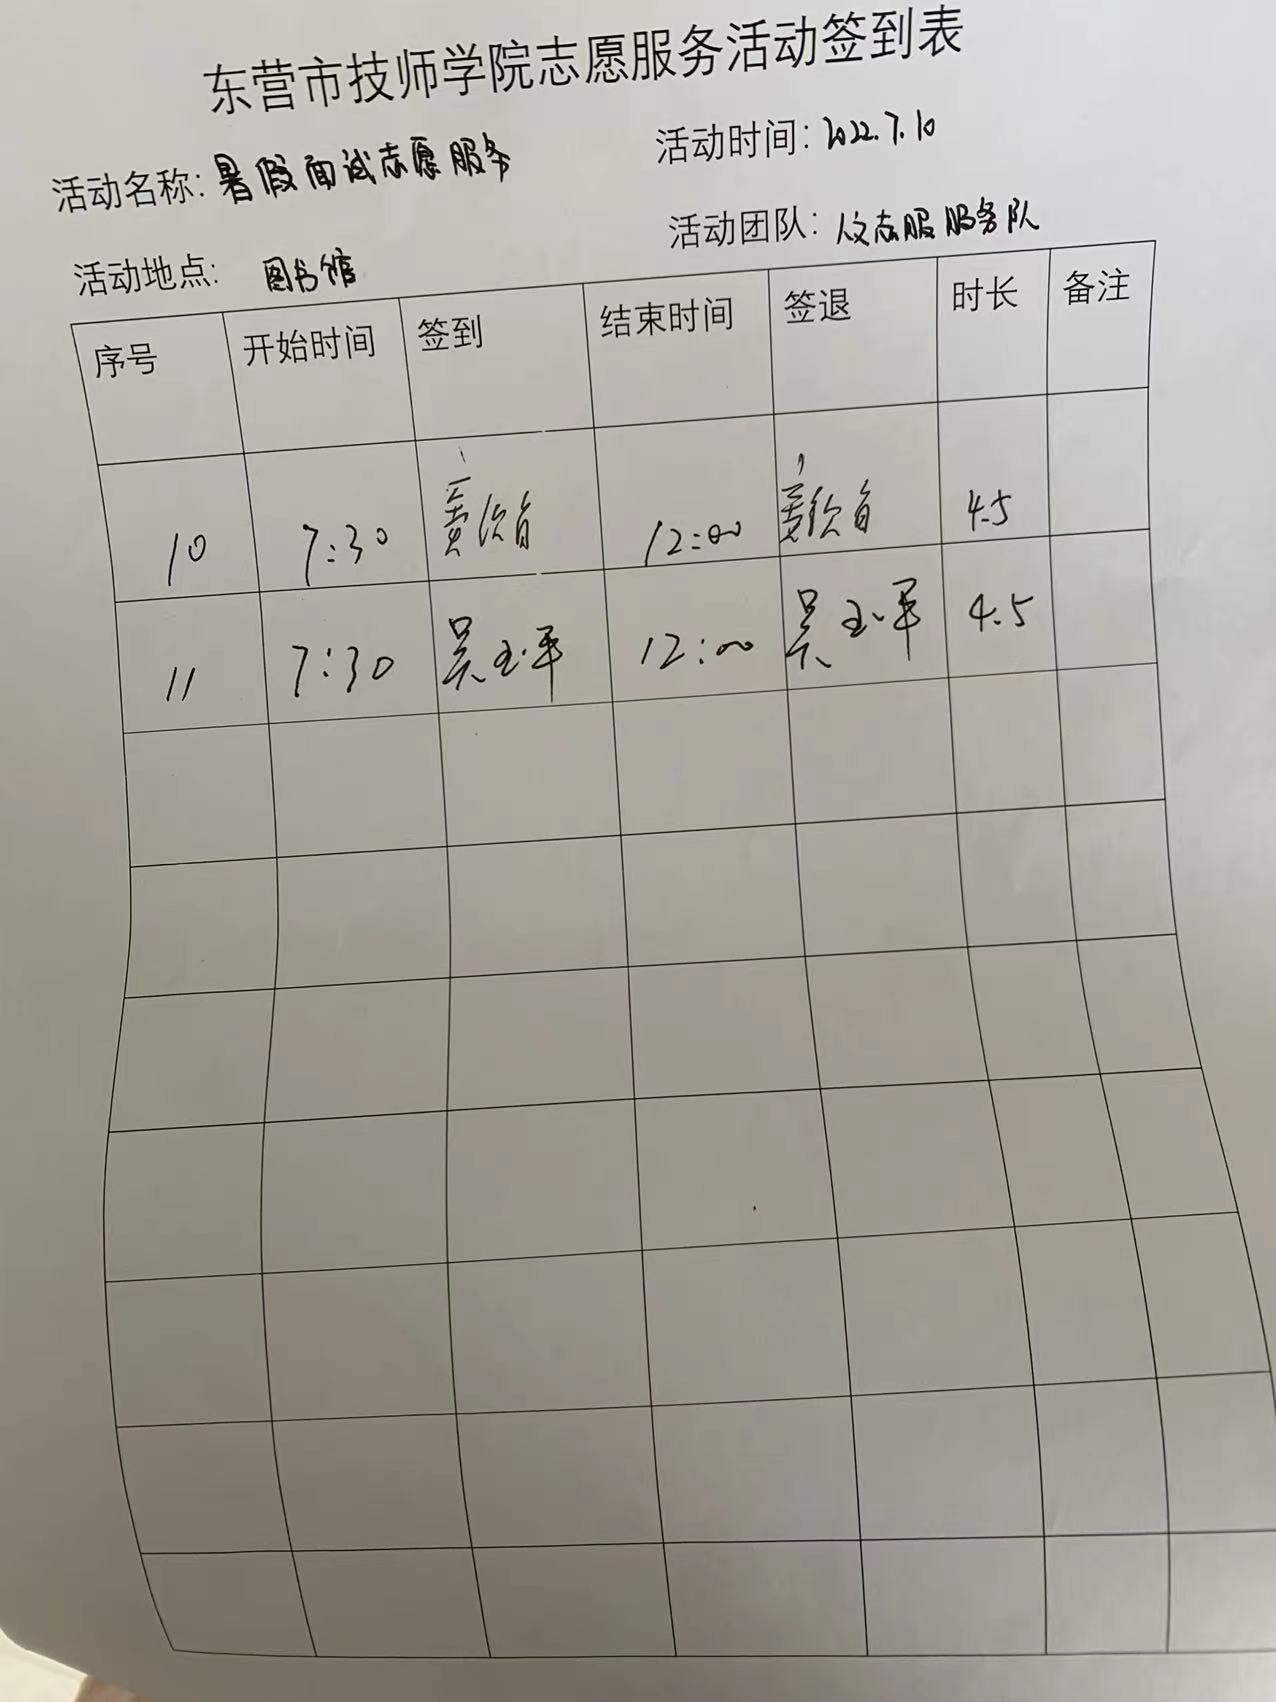 东营市技师学院志愿服务活动签到表
活动名称: 暑假面试志愿服务 活动时间: 2022.7.10
活动地点: 图书馆 活动团队: 志服服务队
序号 开始时间 签到 结束时间 签退 时长 备注
10 7:30 12:00 4.5
11 7:30 吴玉军 12:00 吴玉军 4.5